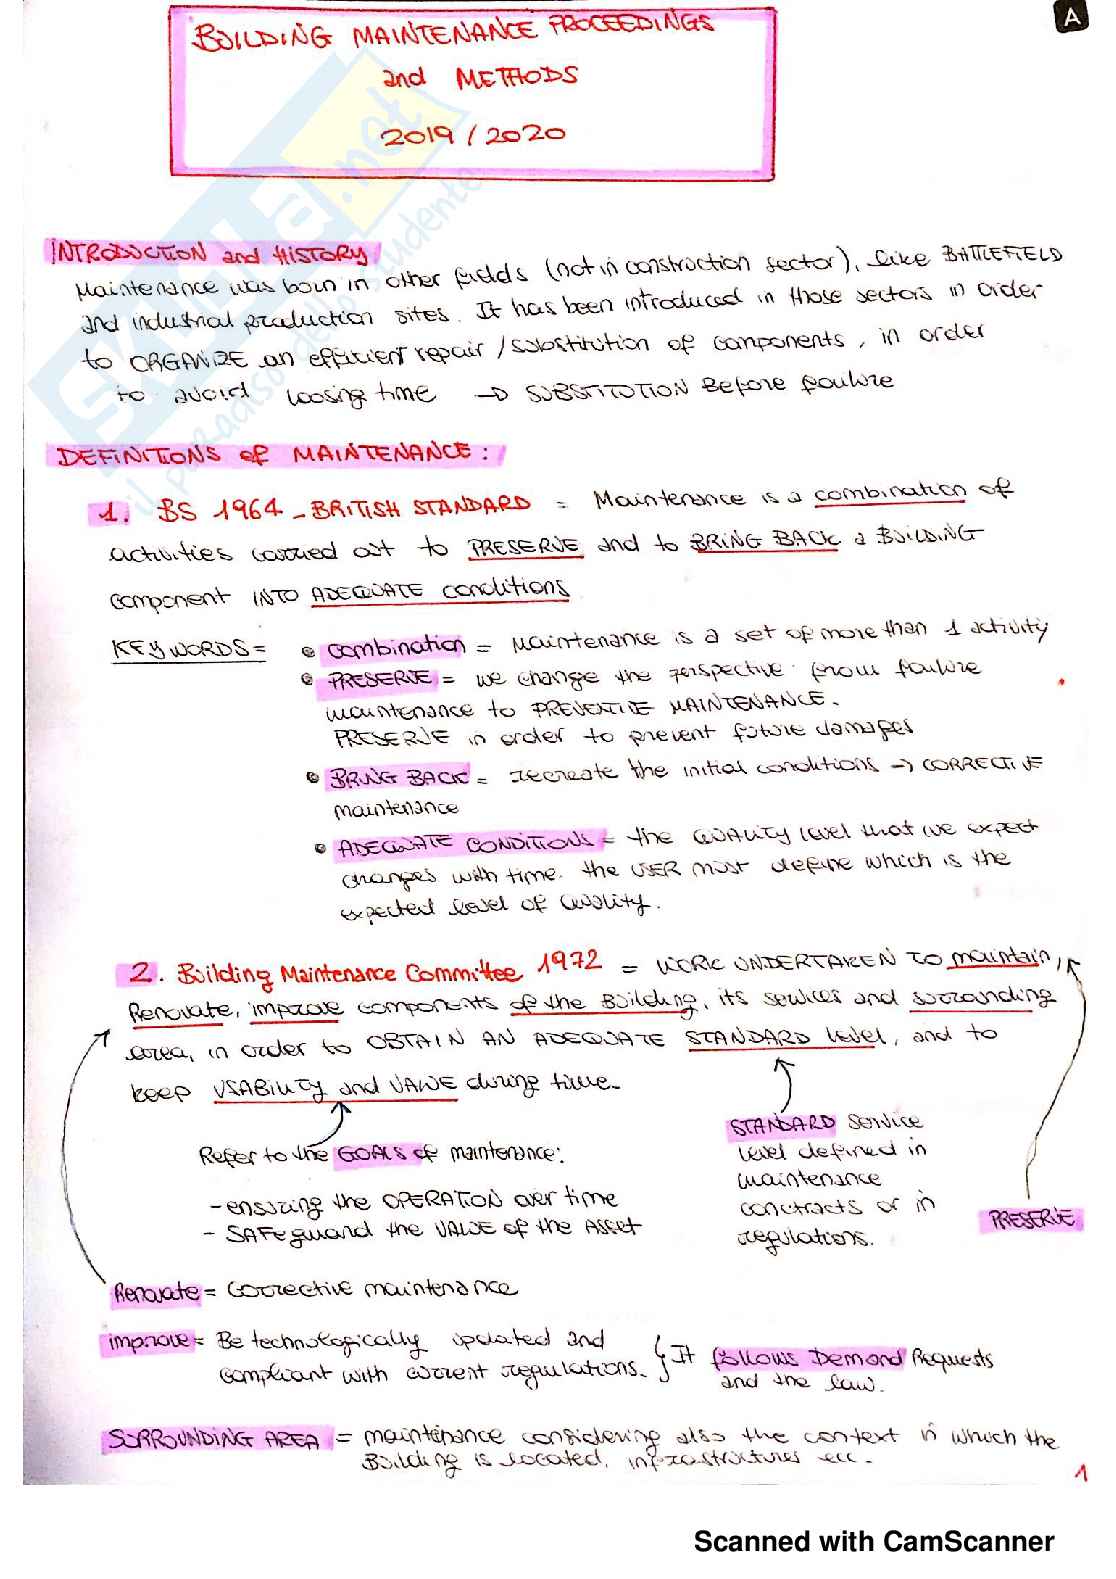 A
BUILDING MAINTENANCE PROCEEDINGS
and METHODS
2019/2020
SKUOLA.net
il paradiso dello studente
INTRODUCTION and HISTORY
Maintenance was born in other fields (not in construction sector), like BATTLEFIELD
and industrial production sites. It has been introduced in those sectors in order
to ORGANIZE an efficient repair/substitution of components, in order
to avoid loosing time → SUBSTITUTION Before failure
DEFINITIONS of MAINTENANCE:
1. BS 1964 - BRITISH STANDARD = Maintenance is a combination of
activities carried out to PRESERVE and to BRING BACK a BUILDING
component INTO ADEQUATE conditions
KEY WORDS = • combination = Maintenance is a set of more than 1 activity
• PRESERVE = we change the perspective from failure
maintenance to PREVENTIVE MAINTENANCE.
PRESERVE in order to prevent future damages
• BRING BACK = recreate the initial conditions → CORRECTIVE
maintenance
• ADEQUATE CONDITIONS = the QUALITY level that we expect
changes with time. the USER must define which is the
expected level of quality.
2. Building Maintenance Committee 1972 = WORK UNDERTAKEN TO maintain,
Renovate, improve components of the Building, its services and surrounding
area, in order to OBTAIN AN ADEQUATE STANDARD level, and to
keep USABILITY and VALUE during time.
Refer to the GOALS of maintenance:
- ensuring the OPERATION over time
- SAFeguard the VALUE of the ASSET
STANDARD service
level defined in
maintenance
contracts or in
regulations.
PRESERVE
Renovate = Corrective maintenance
improve = Be technologically updated and
compliant with current regulations. } It follows Demand Requests
and the law.
SURROUNDING AREA = maintenance considering also the context in which the
Building is located, infrastructures ecc.
1
Scanned with CamScanner